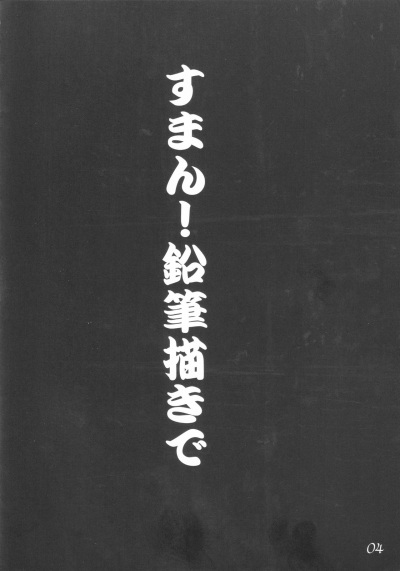 すまん!鉛筆描きで
04